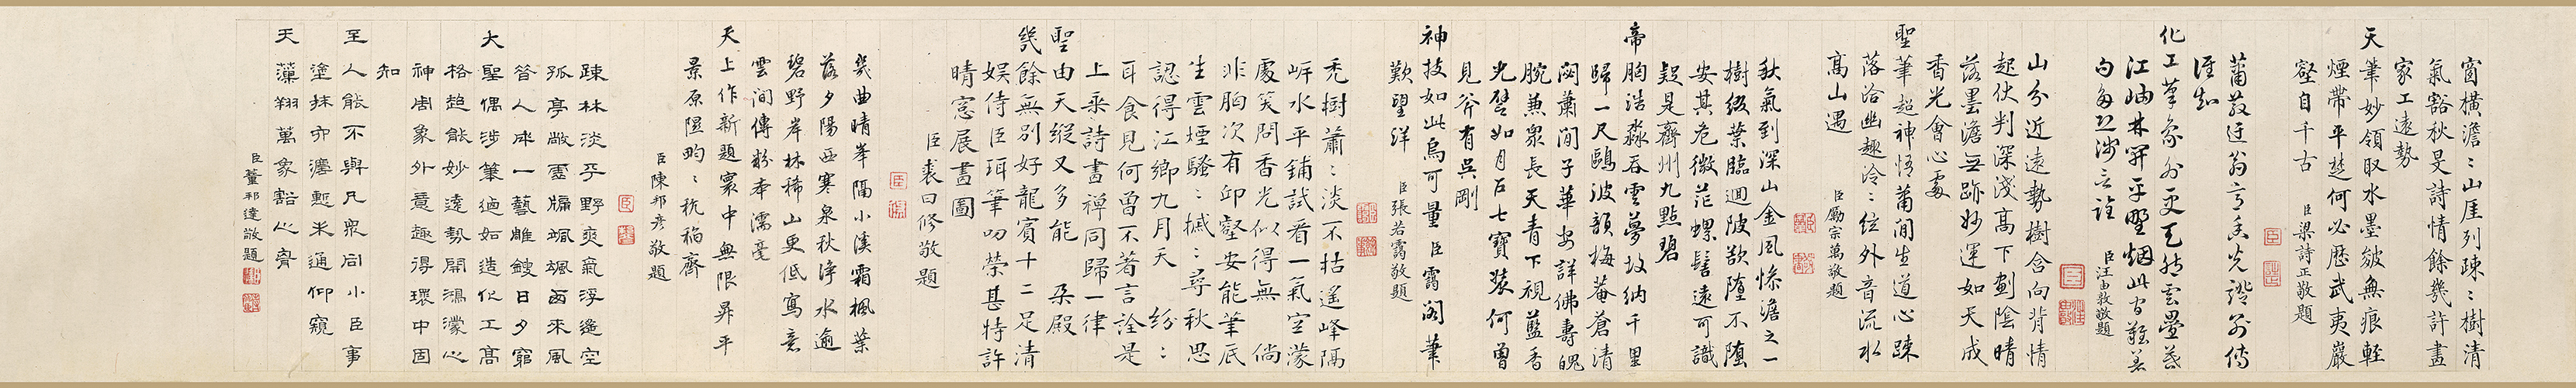 窗橫澹〻山厓列疎〻樹清
氣豁秋旻詩情餘幾許畫
家工遠勢
天筆妙領取水墨皴無痕輕
煙帶平楚何必歷武夷巖
壑自千古
臣梁詩正敬題
蕭蔬迂翁言
化工筆象外更
江岫林
臣汪由敦敬題
山分近遠勢樹含向背情
起伏判深淺高下劃陰晴
落墨澹無跡妙運如天成
香光會心處
聖筆超神悟蕭閒生道心疎
落洽幽趣泠〻弦外音流水
高山遇
臣勵宗萬敬題
秋氣到深山金風慘澹之一
樹綴葉臨迴陂欲墮不墮
安其危微茫螺髻遠可識
疑是齊州九點碧
帝胸浩淼吞雲夢故納千里
歸一尺鷗波韻梅菴蒼清
閟蕭閒子華安詳佛壽魄
腕兼衆長天青下視藍香
光譬如月戶七寶裝何曾
見斧有吳剛
神技如此烏可量臣靄閣筆
歎望洋
臣張若靄敬題
禿樹蕭〻淡不枯遙峰隔
岍水平鋪試看一氣空濛
處笑問香光似得無 倘
非胸次有邱壑安能筆底
生雲煙騷〻摵〻尋秋思
認得江鄉九月天 紛〻
耳食見何曾不著言詮是
上乘詩畫禪同歸一律
聖由天縱又多能 朵殿
幾餘無別好龍賓十二足清
娛侍臣珥筆叨榮甚特許
晴窓展畫圖
臣裘曰修敬題
幾曲晴峯隔小溪霜楓葉
落夕陽西寒泉秋淨水逾
碧野岸林稀山更低寫意
雲間傳粉本濡毫
天上作新題寰中無限昇平
景原隰畇〻秔稻齊
臣陳邦彥敬題
疎林淡平野爽氣浮遙空
孤亭敞雲牖颯颯西來風
昝人成一藝雕鎪日夕窮
大聖偶涉筆適如造化工高
格超能妙遠勢開鴻濛心
神周象外意趣得環中固
知
至人能不與凡衆同小臣事
塗抹亦濡慙未通仰窺
天藻翔萬象豁心胷
臣董邦達敬題